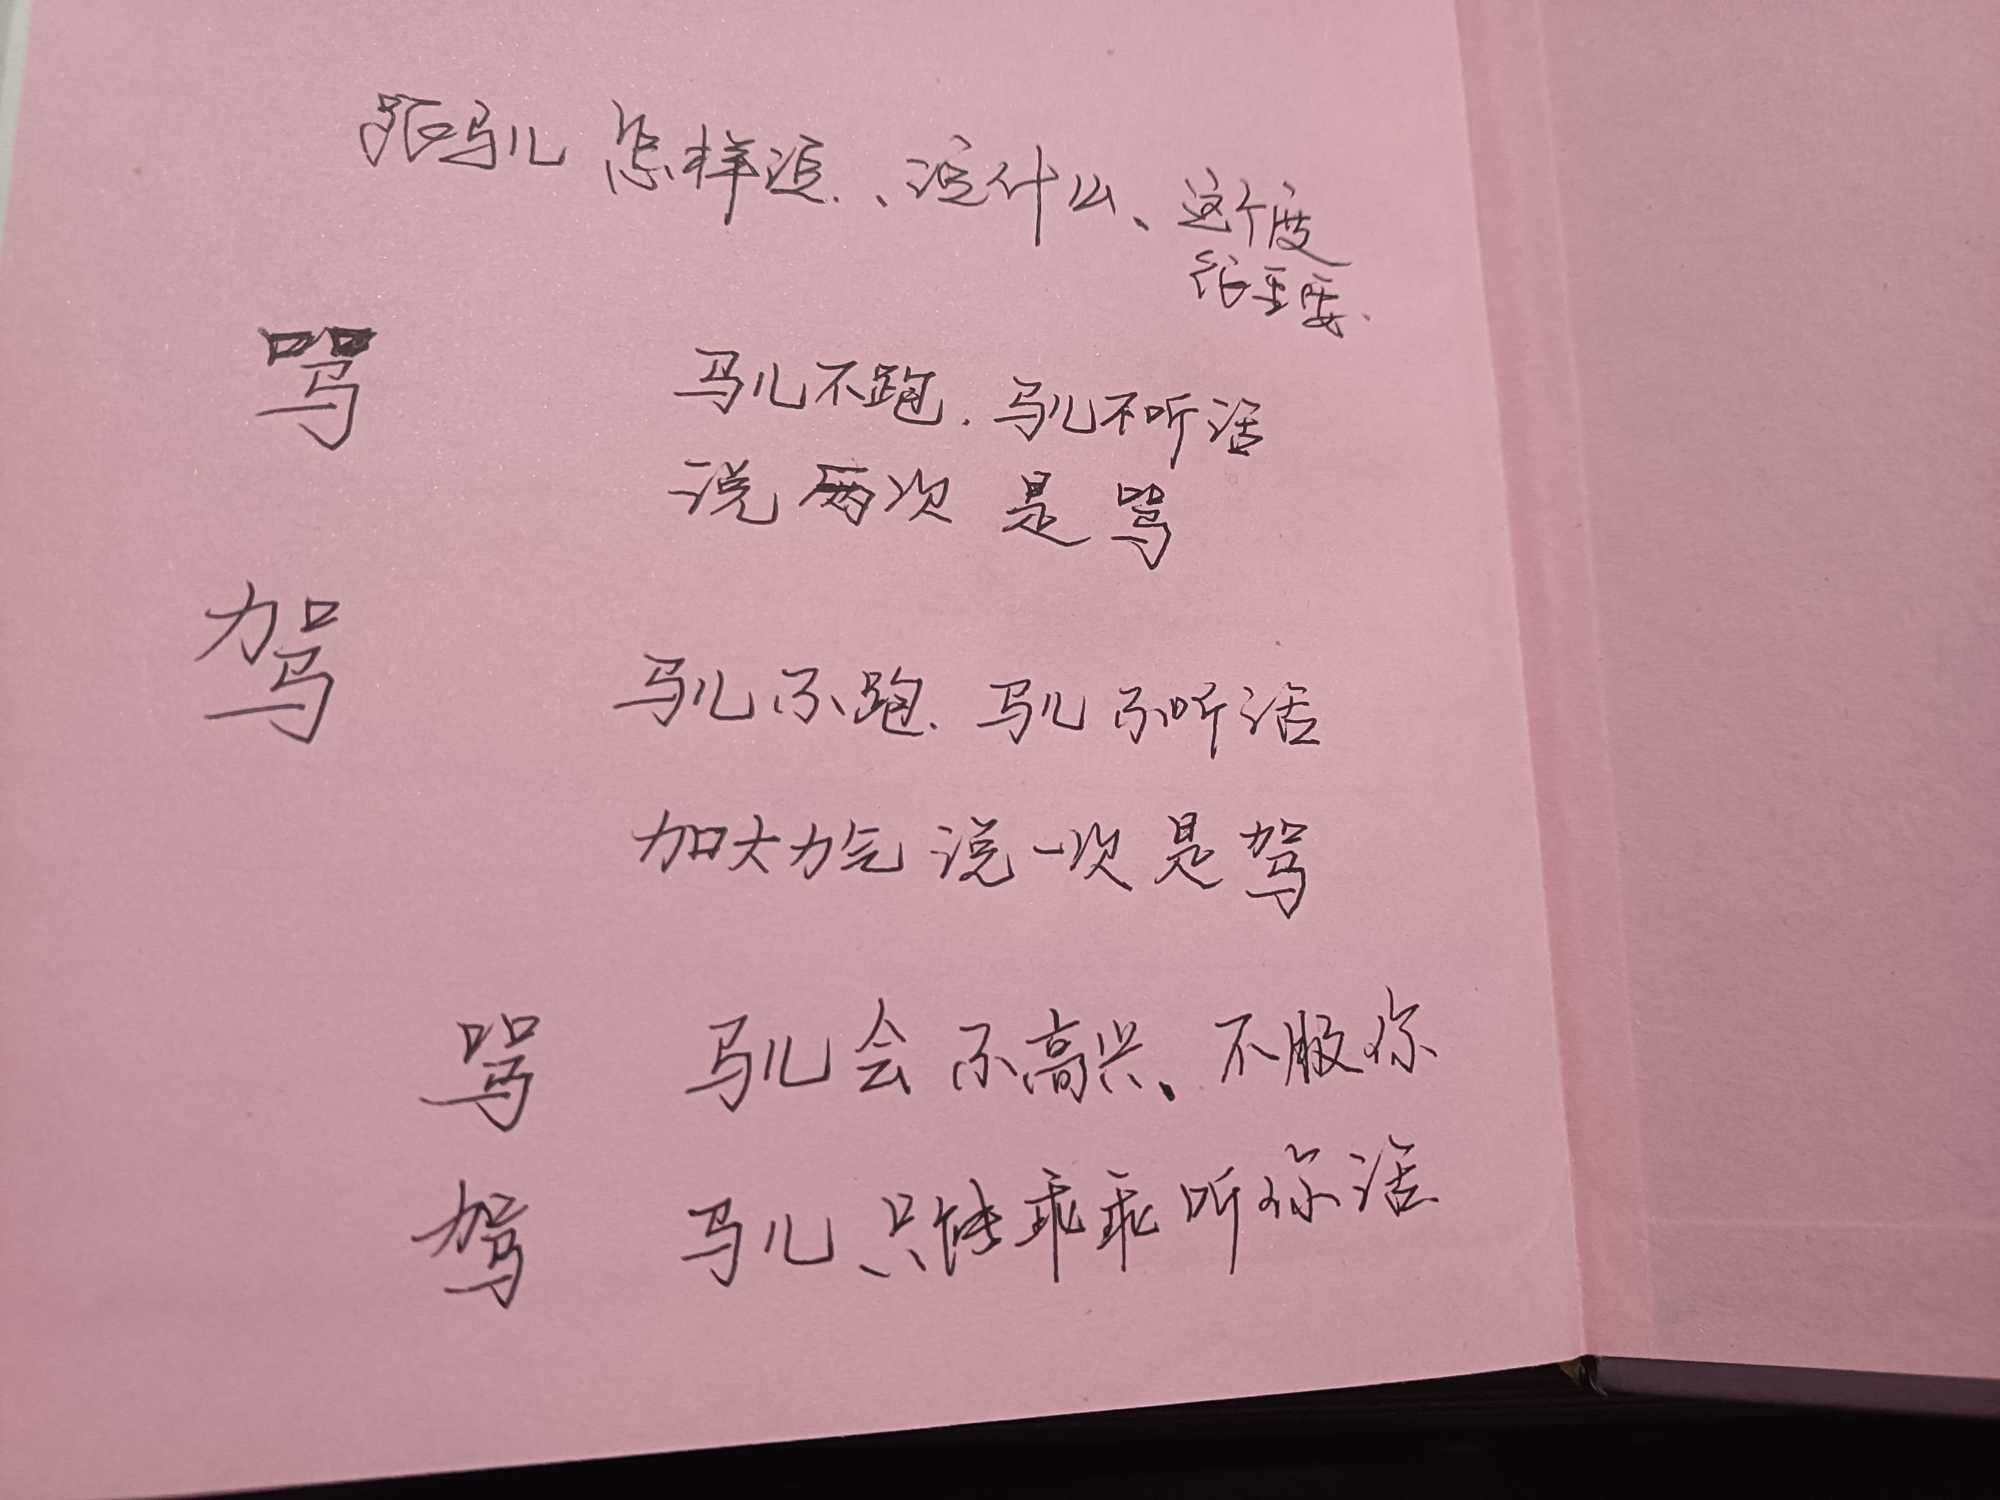 跟马儿 怎样说、说什么、这个度
很重要.
骂 马儿不跑. 马儿不听话
说 两次 是 骂
驾 马儿不跑. 马儿不听话
加大力气 说一次是驾
骂 马儿会不高兴、不服你
驾 马儿只能乖乖听你话